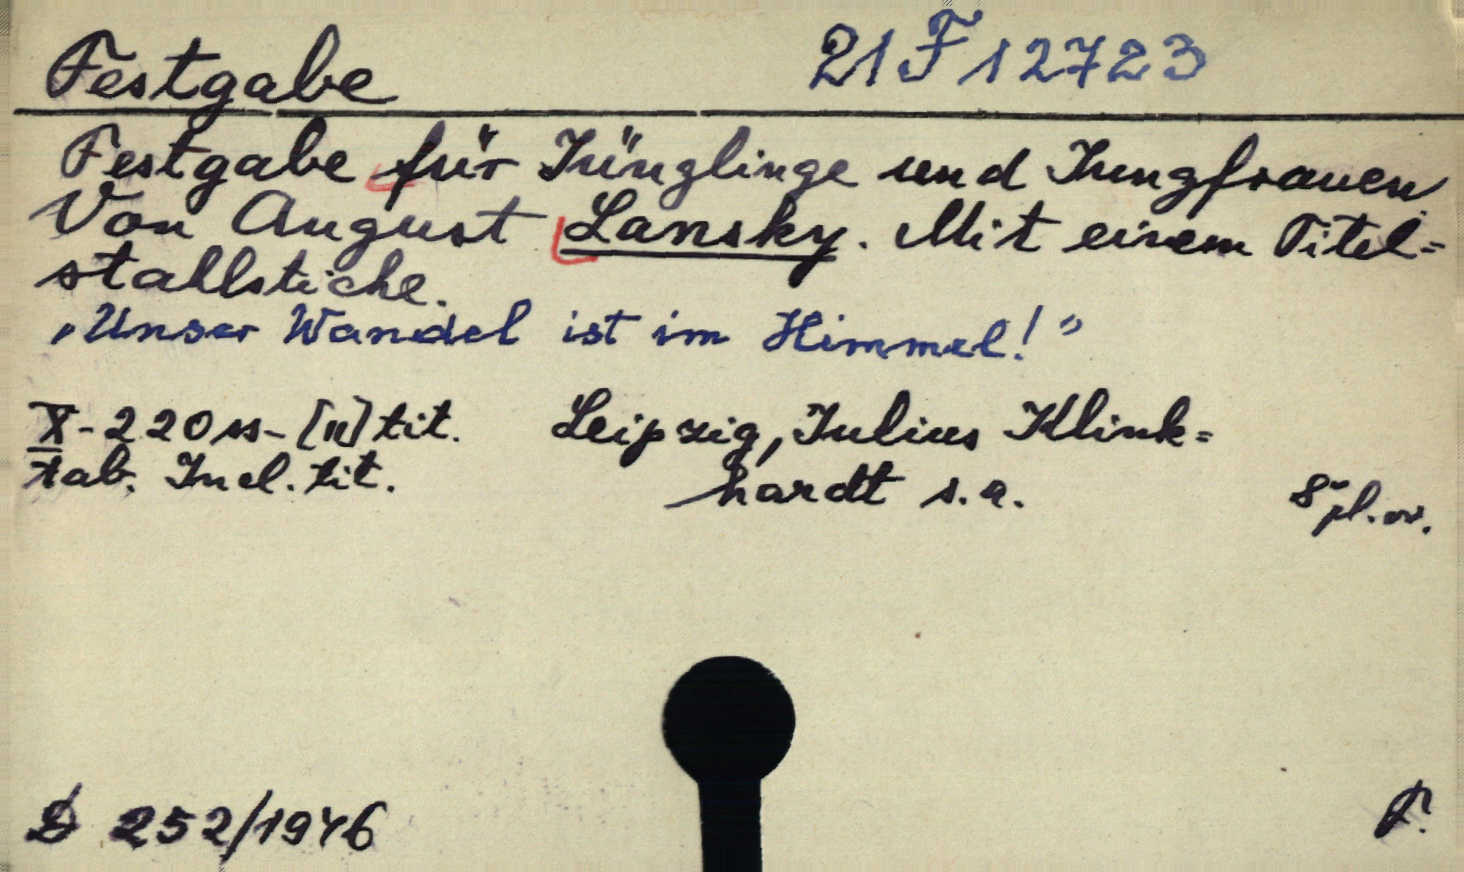 Festgabe 21 F 12723
Festgabe für Jünglinge und Jungfrauen
Von August Lansky. Mit einem Titel=
stahlstiche.
„Unser Wandel ist im Himmel!”
X-220 ss-[II] tit. Leipzig, Julius Klink=
tab. Incl. tit. hardt s.a. 8° pl. ov.
D 252/1946 P.